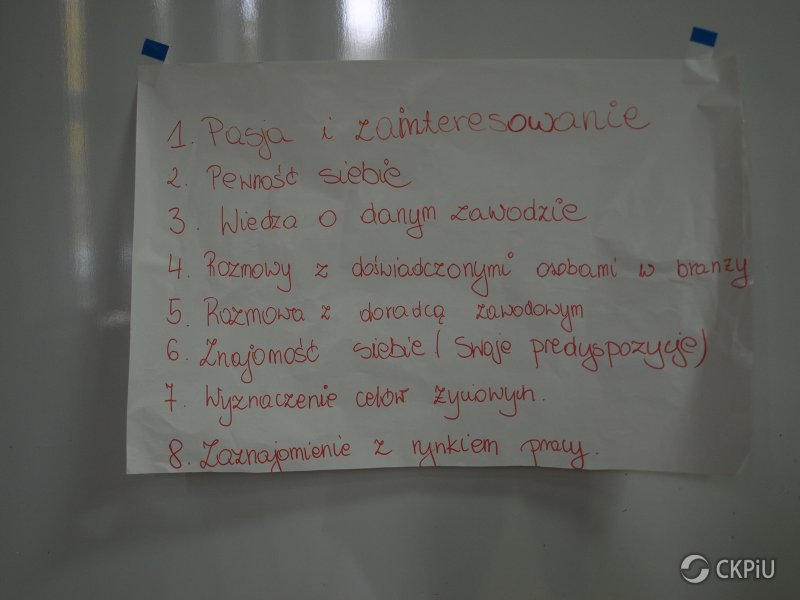 1. Pasja i zainteresowanie
2. Pewność siebie
3. Wiedza o danym zawodzie
4. Rozmowy z doświadczonymi osobami w branży
5. Rozmowa z doradcą zawodowym
6. Znajomość siebie (swoje predyspozycje)
7. Wyznaczenie celów życiowych.
8. Zaznajomienie z rynkiem pracy.
CKPiU